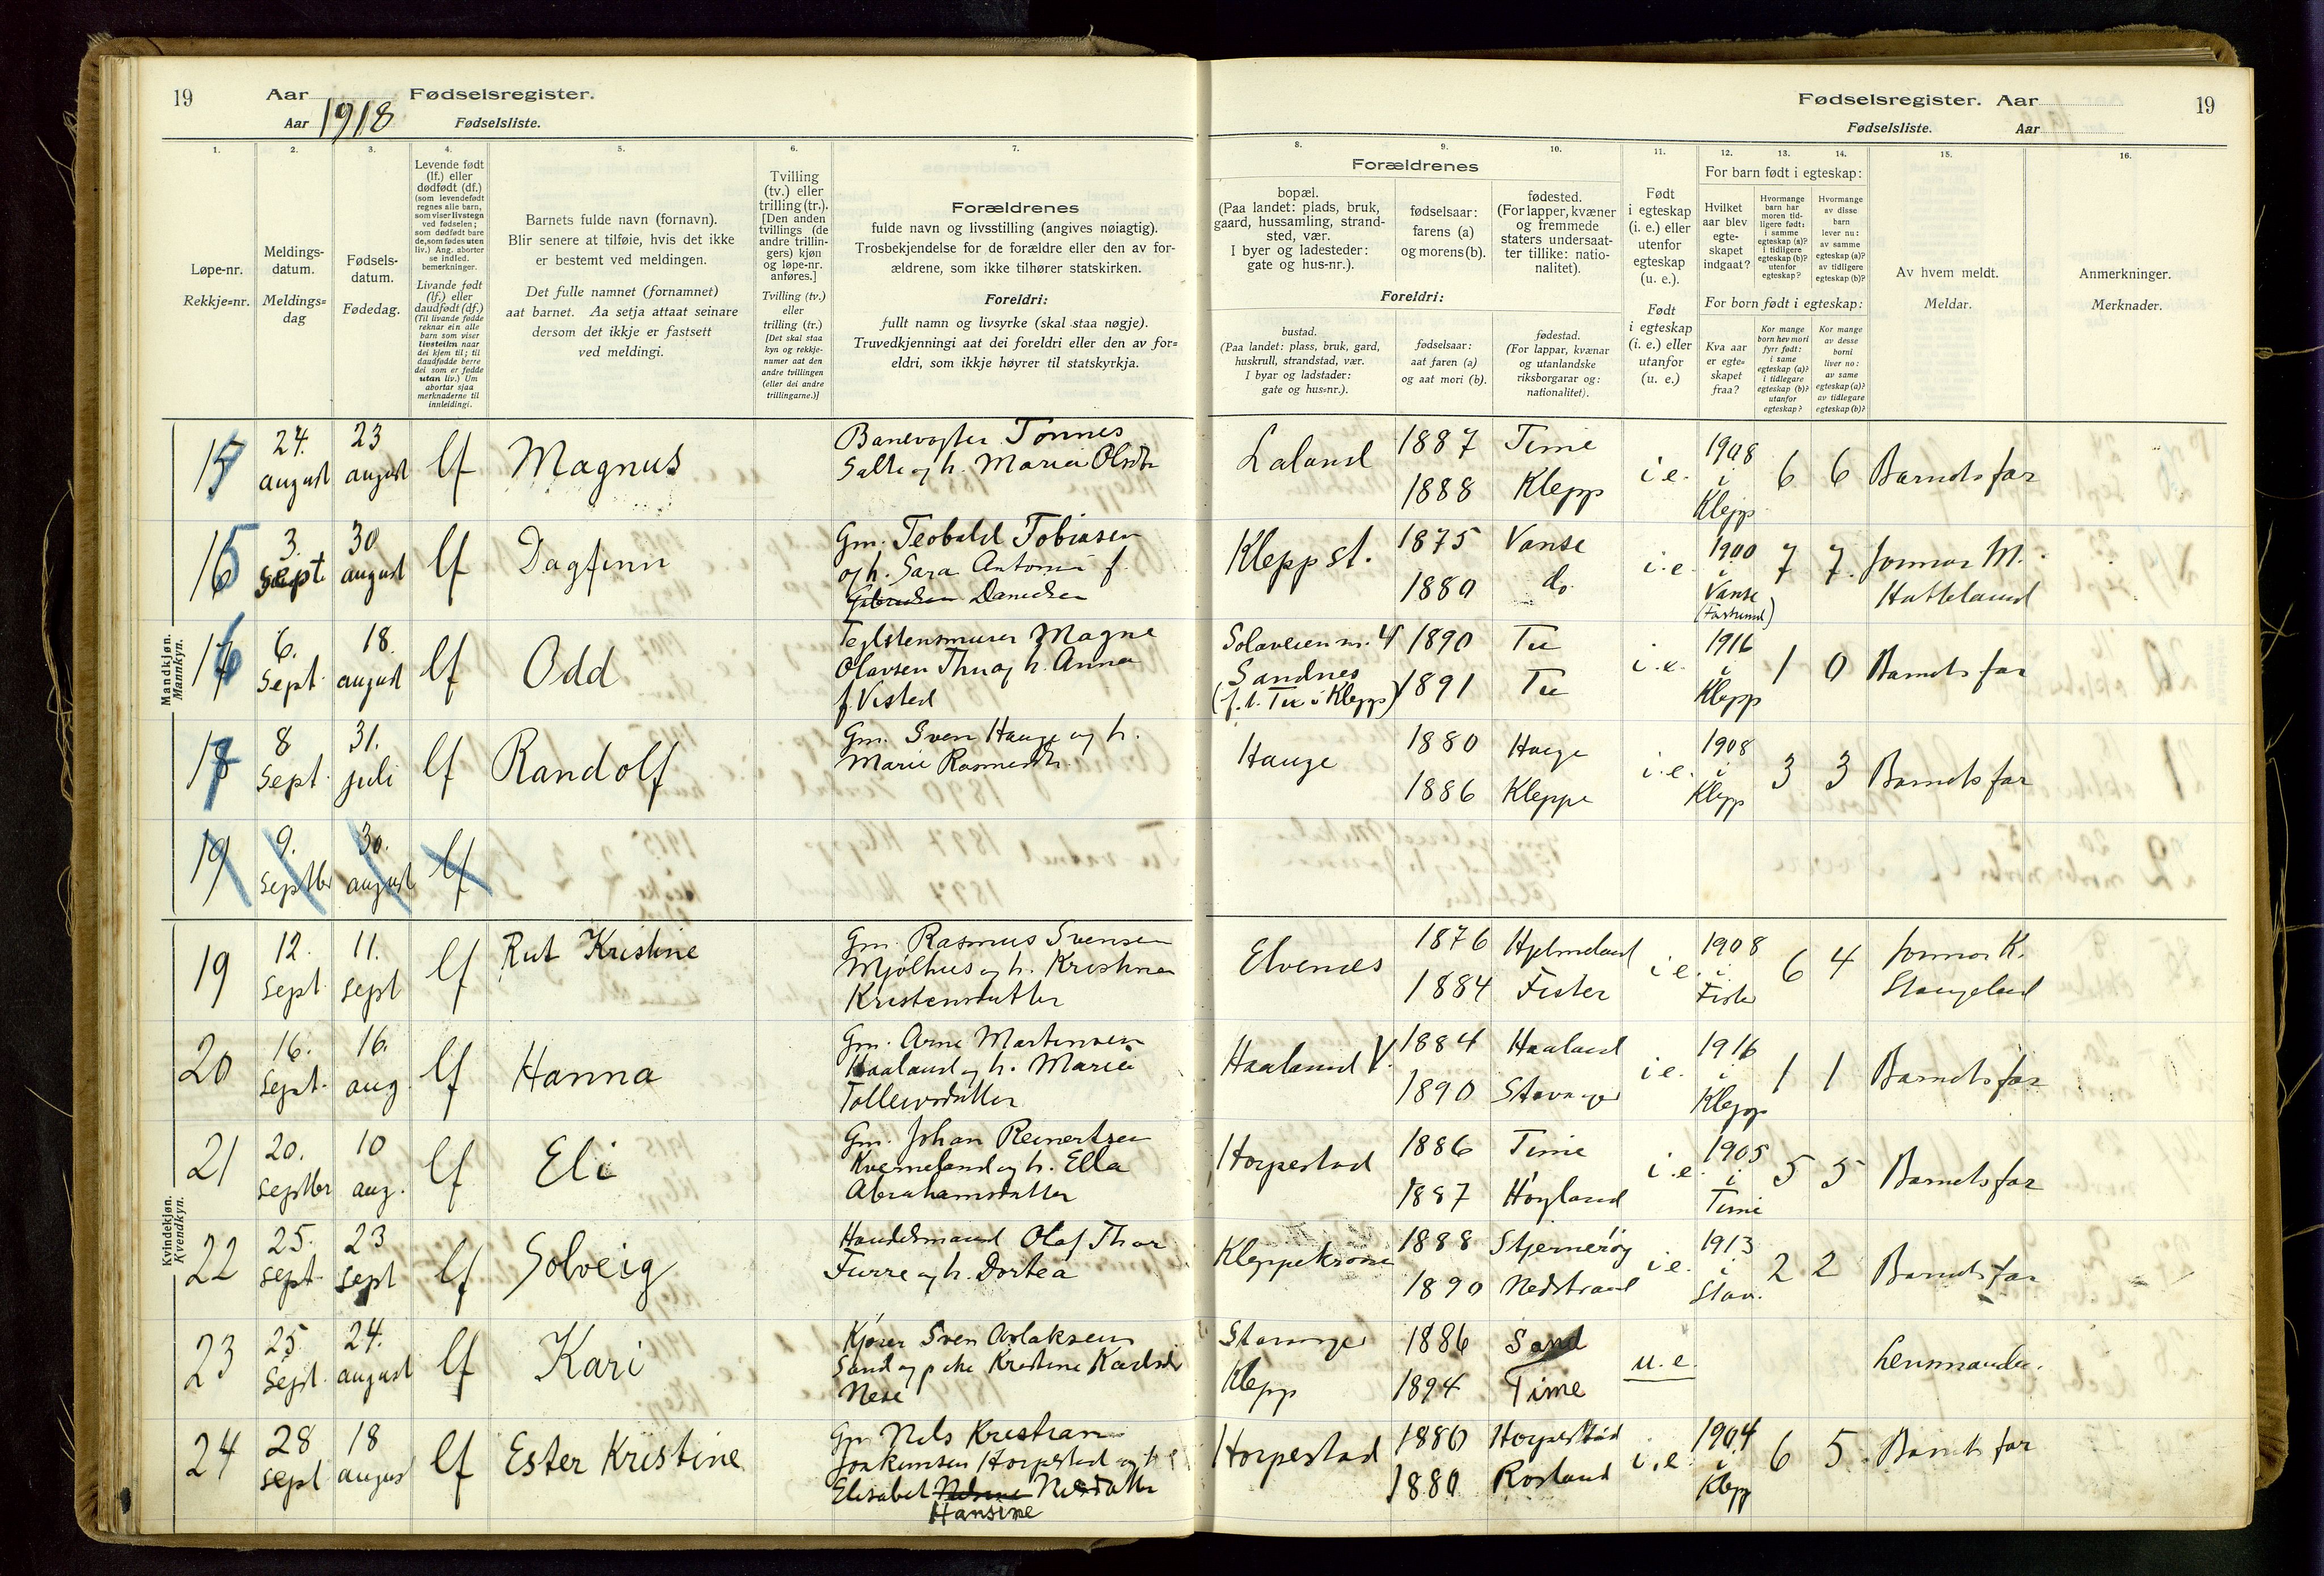 19 Aar Fødselsregister.
Aar 1918 Fødselsliste.
Fødselsregister. Aar 19
Fødselsliste. Aar
1. 2. 3. 4. 5. 6. 7.
Løpe-nr.
Rekkje=nr.
Meldings-
datum.
Meldings=
dag
Fødsels-
datum.
Fødedag.
Levende født
(lf.) eller
dødfødt (df.)
(som levendefødt
regnes alle barn,
som viser livstegn
ved fødselen;
som dødfødt bare
de, som fødes uten
liv.) Ang. aborter
se indled.
bemerkninger.
Livande født
(lf.) eller
daudfødt (df.)
(Til livande fødde
reknar ein alle
barn som viser
livsteikn naar
dei kjem til; til
daudfødde berre
dei som er fødde
utan liv.) Um
abortar sjaa
merknaderne til
innleidingi.
Barnets fulde navn (fornavn).
Blir senere at tilføie, hvis det ikke
er bestemt ved meldingen.
Det fulle namnet (fornamnet)
aat barnet. Aa setja attaat seinare
dersom det ikkje er fastsett
ved meldingi.
Tvilling
(tv.) eller
trilling (tr.).
[Den anden
tvillings (de
andre trillin-
gers) kjøn
og løpe-nr.
anføres.]
Tvilling (tv.)
eller
trilling (tr.)
[Det skal staa
kyn og rekkje-
numer aat den
andre tvillingen
(eller dei andre
trillingarne.)]
Forældrenes
fulde navn og livsstilling (angives nøiagtig).
Trosbekjendelse for de forældre eller den av for-
ældrene, som ikke tilhører statskirken.
Foreldri:
fullt namn og livsyrke (skal staa nøgje).
Truvedkjenningi aat dei foreldri eller den av for=
eldri, som ikkje høyrer til statskyrkja.
8. 9. 10. 11. 12. 13. 14. 15. 16.
Forældrenes
bopæl.
(Paa landet: plads, bruk,
gaard, hussamling, strand-
sted, vær.
I byer og ladesteder:
gate og hus-nr.).
fødselsaar:
farens (a)
og morens (b).
fødested.
(For lapper, kvæner
og fremmede
staters undersaat-
ter tillike: natio-
nalitet).
Foreldri:
bustad.
(Paa landet: plass, bruk, gard,
huskrull, strandstad, vær.
I byar og ladstader:
gate og hus=nr.).
fødselsaar:
aat faren (a)
og aat mori (b).
fødestad.
(For lappar, kvænar
og utanlandske
riksborgarar og:
nationalitet).
Født
i egteskap
(i. e.) eller
utenfor
egteskap
(u. e.).
Født
i egteskap
(i. e.) eller
utanfor
(u. e.)
For barn født i egteskap:
Hvilket
aar blev
egte-
skapet
indgaat?
Hvormange
barn har
moren tid-
ligere født:
i samme
egteskap (a)?
i tidligere
egteskap (b)?
utenfor
egteskap?
Hvormange
av disse
barn
lever nu:
av samme
egteskap (a)?
av tidligere
egteskap (b)?
For born født i egteskap:
Kva aar
er egte=
skapet
fraa?
Kor mange
born hev mori
fyrr født:
i same
egteskap (a)?
i tidlegare
egteskap (b)?
utanfor
egteskap?
Kor mange
av desse
borni
liver no:
av same
egteskap (a)?
av tidlegare
egteskap (b)?
Av hvem meldt.
Meldar.
Anmerkninger.
Merknader.
Mandkjøn.
Mannkyn.
15 24. august 23 august lf Magnus
Banevogter Tønnes
Salte og h. Maria Olsdtr
Laland 1887 Time i.e. 1908 i Klepp 6 6 Barnets far
1888 Klepp
16 3. Sept 30 august lf Dagfinn
Gm. Teobald Tobiasen
og h. Sara Antonie f.
Danielsen
Klepp st. 1875 Vanse i.e. 1900 i Vanse (Farsund) 7 7. Jormor M.
1880 do. Hatteland
6. Sept. 18. august lf Odd
Teglstensmurer Magne
Olavsen Thu og h. Anna
f. Visted
Solaveien nr. 4 1890 Tu i.e. 1916 i Klepp 1 0 Barnets far
Sandnes
(f. t. Tu i Klepp) 1891 Tu
8 Sept. 31. juli lf Randolf
Gm. Sven Hauge og h.
Marie Rasmusdtr.
Hauge 1880 Hauge i.e. 1908 i Klepp 3 3 Barnets far
1886 Kleppe
19 9. Septbr 30. august lf
Kvindekjøn.
Kvendkyn.
19 12. Sept. 11. Sept lf Rut Kristine
Gm. Rasmus Svensen
Mjølhus og h. Kristina
Kristensdatter
Elvenes 1876 Hjelmeland i.e. 1908 i Fister 6 4 Jormor K.
1884 Fister Stangeland
20 16. Sept. 16. aug. lf Hanna
Gm. Arne Martinsen
Haaland og h. Maria
Tolleivsdatter
Haaland V. 1884 Haaland i.e. 1916 i Klepp 1 1 Barnets far
1890 Stavanger
21 20. Septbr 10 aug. lf Eli
Gm. Johan Reinertsen
Kverneland og h. Ella
Abrahamsdatter
Horpestad 1886 Time i.e. 1905 i Time 5 5 Barnets far
1887 Høyland
22 25. Sept. 23 Sept lf Solveig
Handelsmand Olaf Thor
Furre og h. Dortea
Kleppekrossen 1888 Stjernerøy i.e. 1913 i Stav. 2 2 Barnets far
1890 Nedstrand
23 25. Sept. 24. august lf Kari
Kjører Sven Aslaksen
Sand og pike Kristine Karlsdtr
Nese
Stavanger 1886 Sand u.e. Lensmanden.
Klepp 1894 Time
24 28 Sept 18 august lf Ester Kristine
Gm Nils Kristian
Joakimsen Horpestad og h
Elisabet Nilsdatter
Hansine
Horpestad 1880 Horpestad i.e. 1904 i Klepp 6 5. Barnets far
1880 Rosland